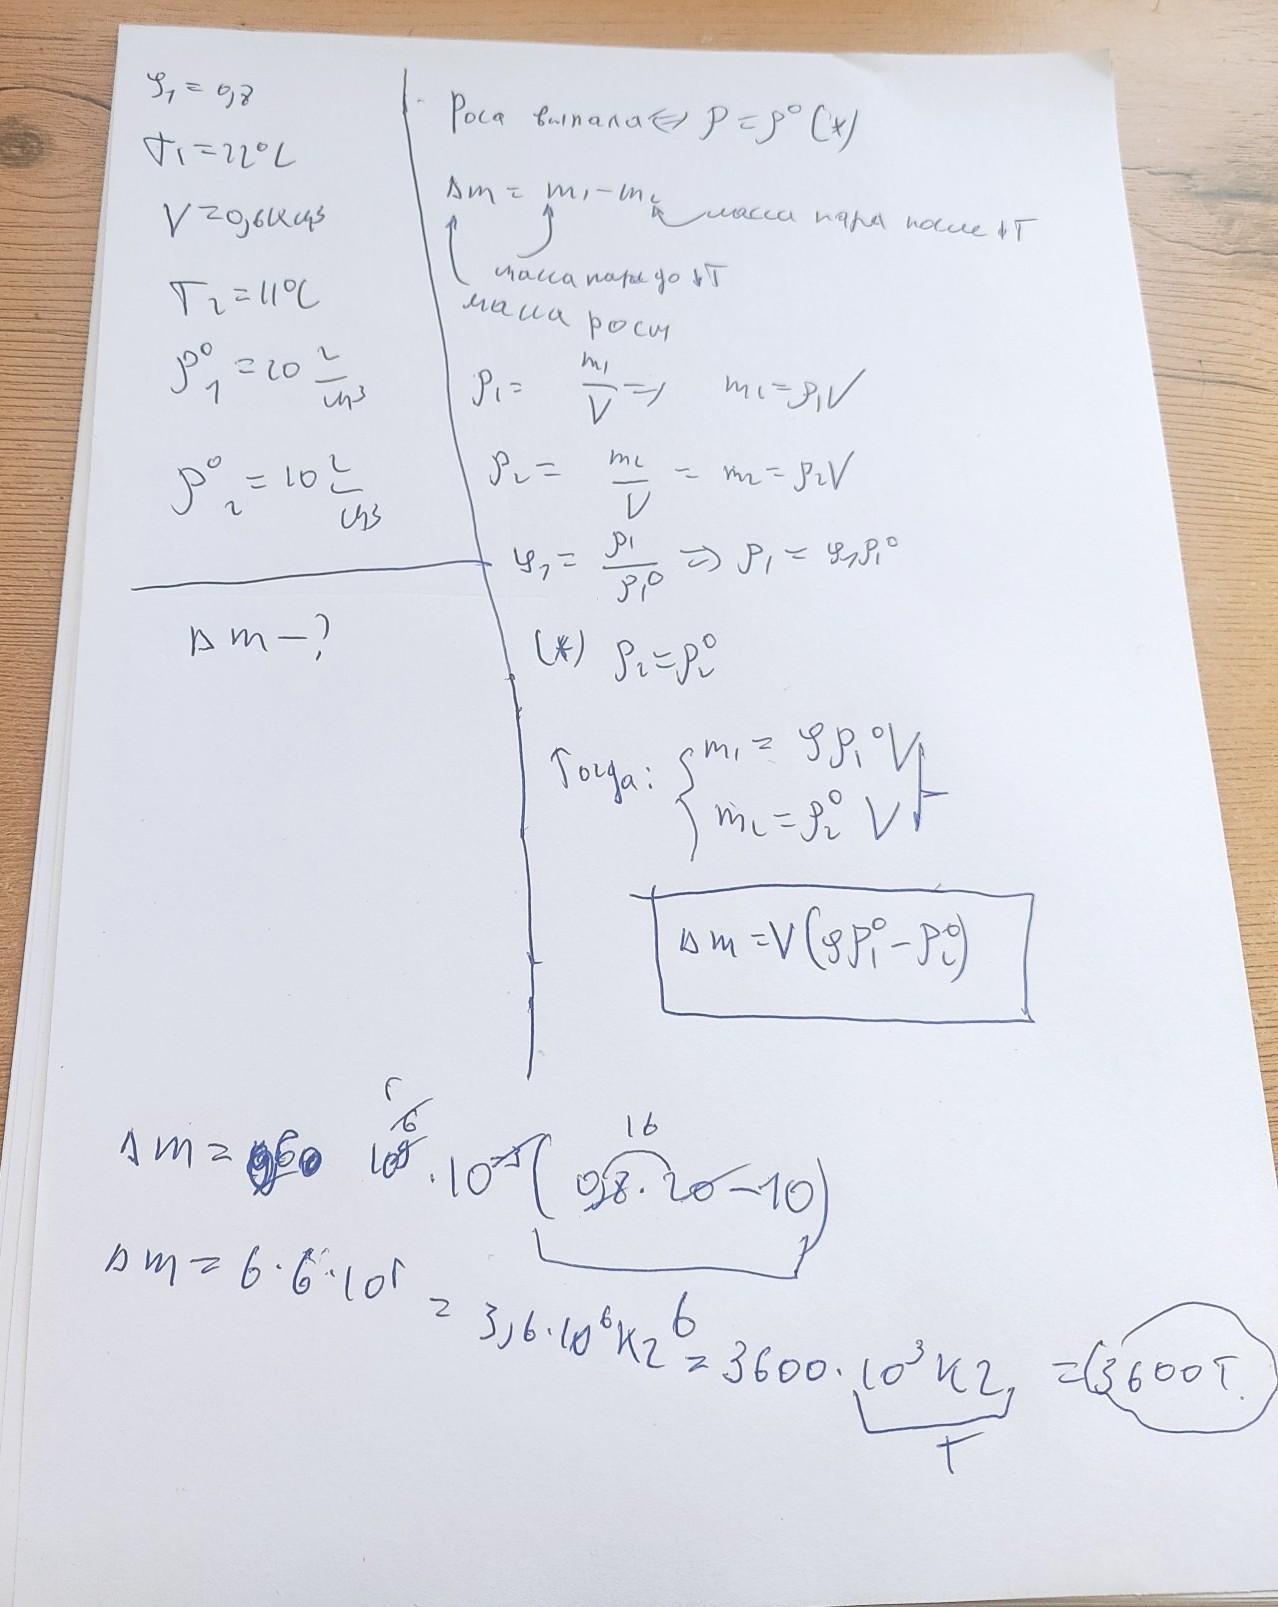 φ₁ = 0,8
T₁ = 22°C
V = 0,6 км³
T₂ = 11°C
ρ₁⁰ = 20 г/м³
ρ₂⁰ = 10 г/м³
Δm - ?
Роса выпала ⇔ ρ = ρ⁰ (*)
Δm = m₁ - m₂
масса пара после ↓T
масса пара до ↓T
масса росы
ρ₁ = m₁/V ⇒ m₁ = ρ₁V
ρ₂ = m₂/V = m₂ = ρ₂V
φ₁ = ρ₁/ρ₁⁰ ⇒ ρ₁ = φ₁ρ₁⁰
(*) ρ₂ = ρ₂⁰
Тогда: { m₁ = φρ₁⁰V
m₂ = ρ₂⁰ V
Δm = V(φρ₁⁰ - ρ₂⁰)
16
Δm = (0,8 · 20 - 10)
6
Δm = 6 · 6 · 10⁵ = 3,6 · 10⁶ кг = 3600 · 10³ кг = 3600 т.
т